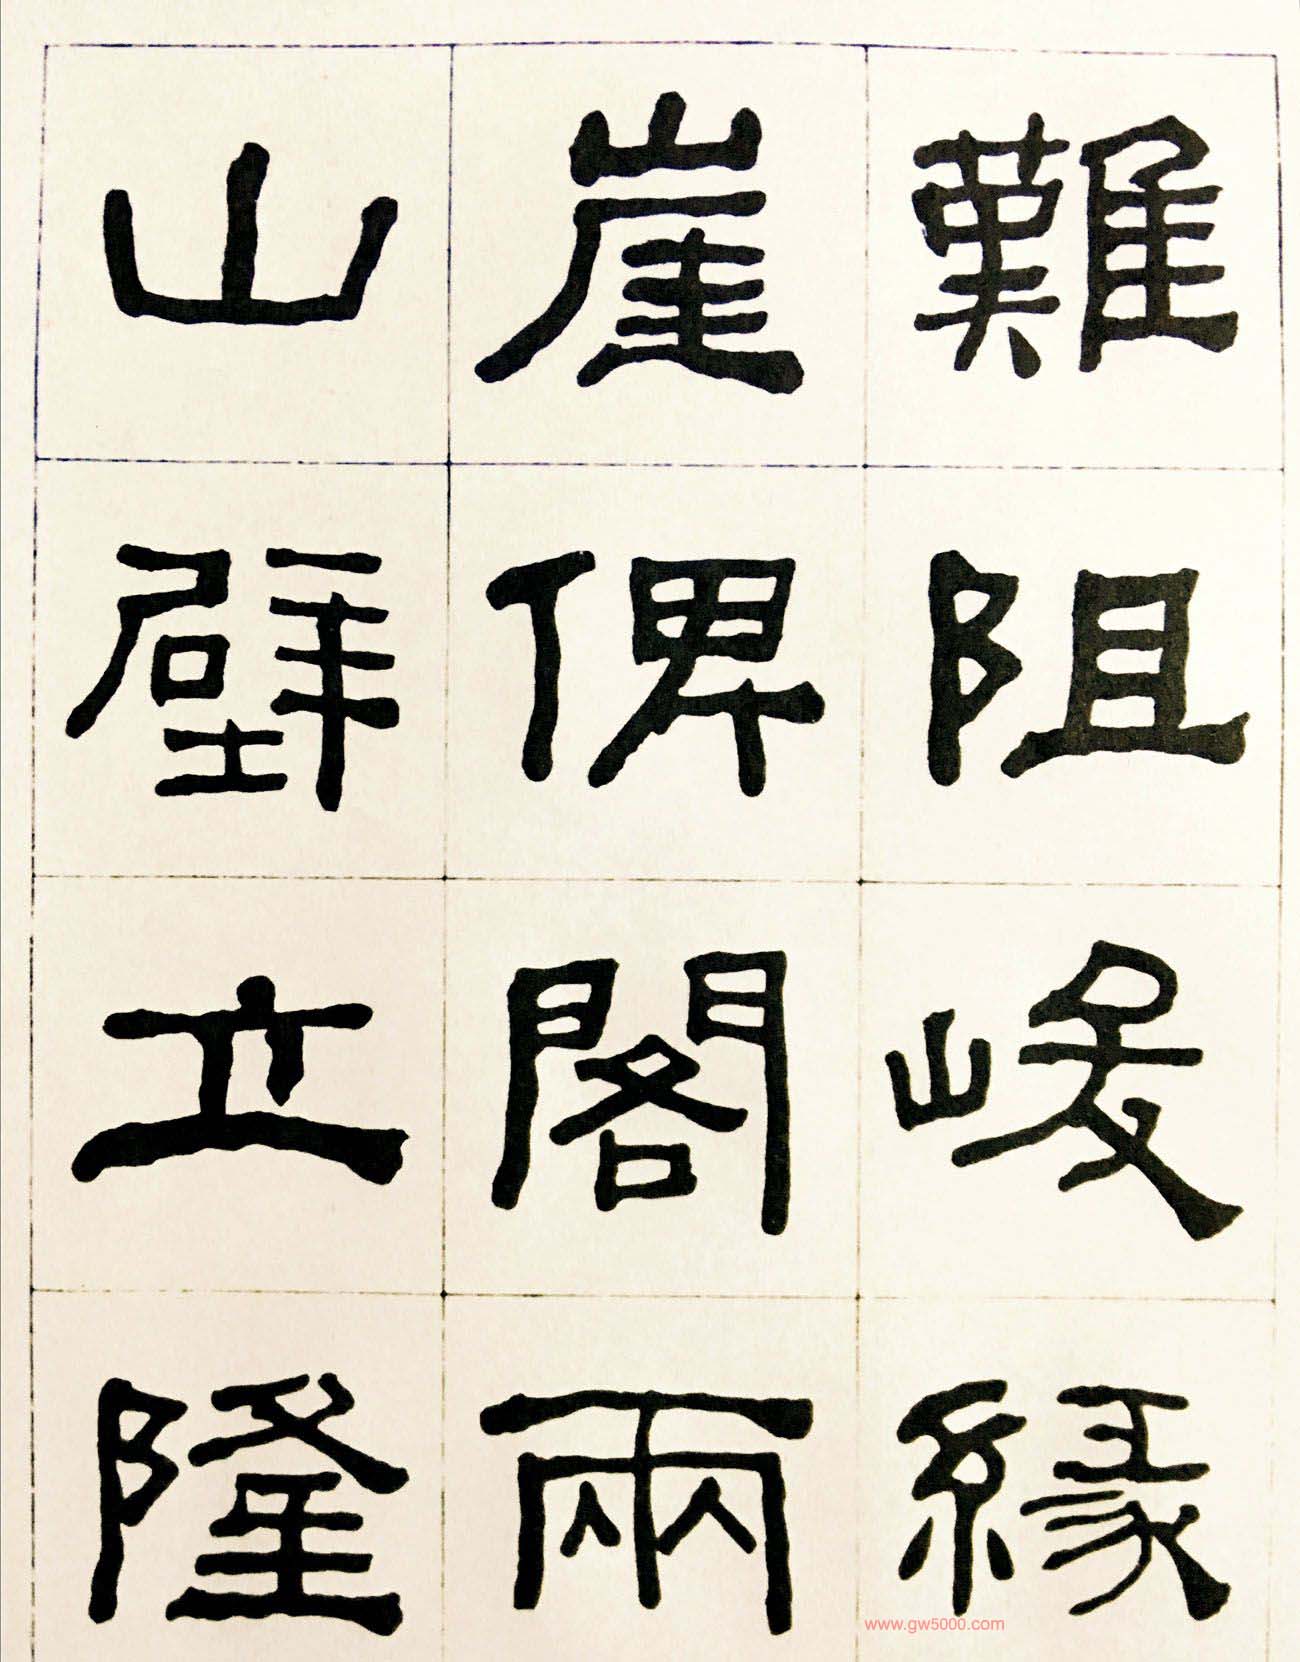 難阻峻緣
崖俾閣兩
山壁立隆
www.gw5000.com